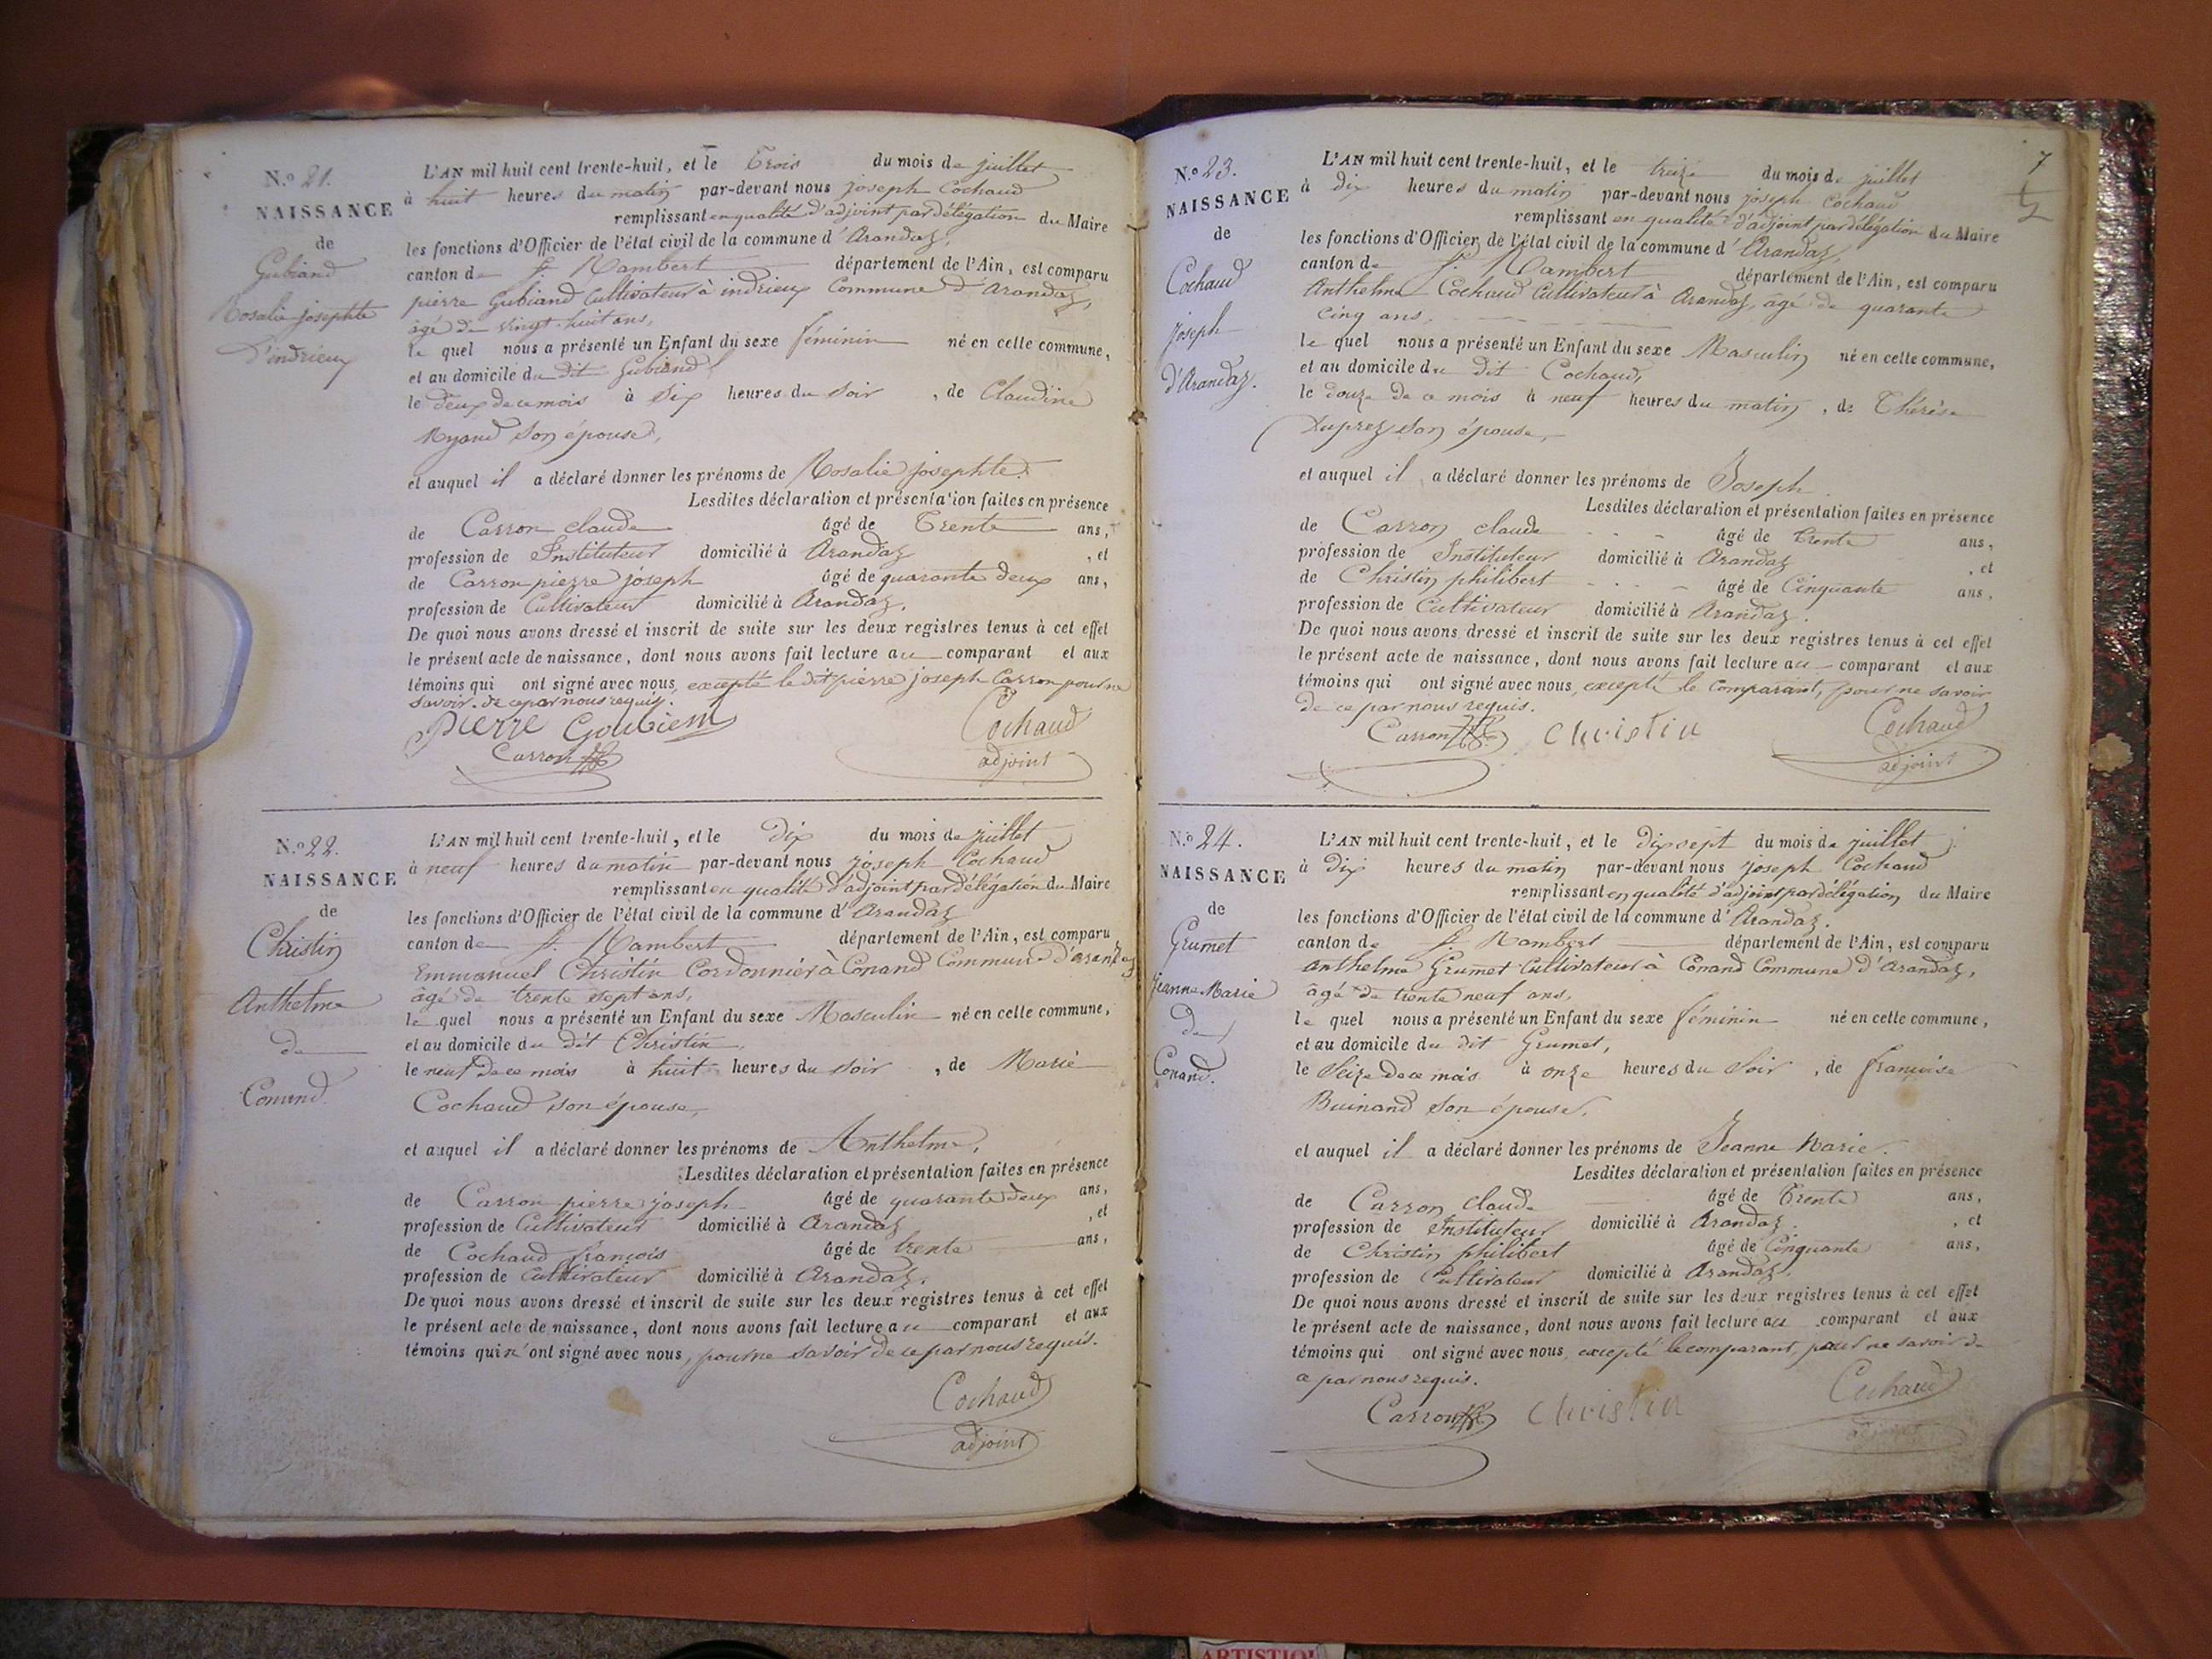 N.o 21.
NAISSANCE
de
Gubiand
Rosalie josephte
d'indrieux
L'AN mil huit cent trente-huit, et le Trois du mois de juillet
à huit heures du matin par-devant nous joseph Cochaud
remplissant en qualité d'adjoint par délégation du Maire
les fonctions d'Officier de l'état civil de la commune d'Arandaz,
canton de St. Rambert département de l'Ain, est comparu
pierre Gubiand Cultivateur à indrieux Commune d'Arandaz,
âgé de vingt-huit ans,
le quel nous a présenté un Enfant du sexe féminin né en cette commune,
et au domicile du dit Gubiand
le deux de ce mois à six heures du soir, de Claudine
son épouse,
et auquel il a déclaré donner les prénoms de Rosalie josephte.
Lesdites déclaration et présentation faites en présence
de Carron claude âgé de Trente ans,
profession de Instituteur domicilié à Arandaz, et
de Carron pierre joseph âgé de quarante deux ans,
profession de Cultivateur domicilié à Arandaz.
De quoi nous avons dressé et inscrit de suite sur les deux registres tenus à cet effet
le présent acte de naissance, dont nous avons fait lecture au comparant et aux
témoins qui ont signé avec nous, excepté le dit pierre joseph Carron pour ne
savoir. de ce par nous requis.
Pierre Goubient Cochaud
Carron adjoint
N.o 22.
NAISSANCE
de
Christin
Anthelme
de
Conand.
L'AN mil huit cent trente-huit, et le dix du mois de juillet
à neuf heures du matin par-devant nous joseph Cochaud
remplissant en qualité d'adjoint par délégation du Maire
les fonctions d'Officier de l'état civil de la commune d'Arandaz
canton de St. Rambert département de l'Ain, est comparu
Emmanuel Christin Cordonnier à Conand Commune d'arandaz
âgé de trente sept ans,
le quel nous a présenté un Enfant du sexe Masculin né en cette commune,
et au domicile du dit Christin,
le neuf de ce mois à huit heures du soir, de Marie
Cochaud son épouse,
et auquel il a déclaré donner les prénoms de Anthelme,
Lesdites déclaration et présentation faites en présence
de Carron pierre joseph âgé de quarante deux ans,
profession de Cultivateur domicilié à Arandaz, et
de Cochaud françois âgé de trente ans,
profession de Cultivateur domicilié à Arandaz.
De quoi nous avons dressé et inscrit de suite sur les deux registres tenus à cet effet
le présent acte de naissance, dont nous avons fait lecture au comparant et aux
témoins qui n'ont signé avec nous, pour ne savoir de ce par nous requis.
Cochaud
adjoint
7
N.o 23.
NAISSANCE
de
Cochaud
joseph
d'Arandaz.
L'AN mil huit cent trente-huit, et le treize du mois de juillet
à dix heures du matin par-devant nous joseph Cochaud
remplissant en qualité d'adjoint par délégation du Maire
les fonctions d'Officier de l'état civil de la commune d'Arandaz,
canton de St. Rambert département de l'Ain, est comparu
Anthelme Cochaud Cultivateur à Arandaz, âgé de quarante
Cinq ans,
le quel nous a présenté un Enfant du sexe Masculin né en cette commune,
et au domicile du dit Cochaud,
le douze de ce mois à neuf heures du matin, de Thérèse
Duprez son épouse,
et auquel il a déclaré donner les prénoms de Joseph
Lesdites déclaration et présentation faites en présence
de Carron claude âgé de Trente ans,
profession de Instituteur domicilié à Arandaz, et
de Christin philibert âgé de Cinquante ans,
profession de Cultivateur domicilié à Arandaz.
De quoi nous avons dressé et inscrit de suite sur les deux registres tenus à cet effet
le présent acte de naissance, dont nous avons fait lecture au comparant et aux
témoins qui ont signé avec nous, excepté le Comparant, pour ne savoir
De ce par nous requis.
Carron Christin Cochaud
adjoint
N.o 24.
NAISSANCE
de
Grumet
Jeanne Marie
de
Conand.
L'AN mil huit cent trente-huit, et le dix sept du mois de juillet
à Dix heures du matin par-devant nous joseph Cochaud
remplissant en qualité d'adjoint par délégation du Maire
les fonctions d'Officier de l'état civil de la commune d'Arandaz.
canton de St. Rambert département de l'Ain, est comparu
anthelme Grumet Cultivateur à Conand Commune d'Arandaz,
âgé de trente neuf ans,
le quel nous a présenté un Enfant du sexe féminin né en cette commune,
et au domicile du dit Grumet,
le Seize de ce mois à onze heures du soir, de françoise
Buinand son épouse.
et auquel il a déclaré donner les prénoms de Jeanne Marie.
Lesdites déclaration et présentation faites en présence
de Carron Claude âgé de Trente ans,
profession de Instituteur domicilié à Arandaz, et
de Christin philibert âgé de Cinquante ans,
profession de Cultivateur domicilié à Arandaz,
De quoi nous avons dressé et inscrit de suite sur les deux registres tenus à cet effet
le présent acte de naissance, dont nous avons fait lecture au comparant et aux
témoins qui ont signé avec nous excepté le comparant, pour ne savoir de
ce par nous requis.
Carron Christin Cochaud
adjoint